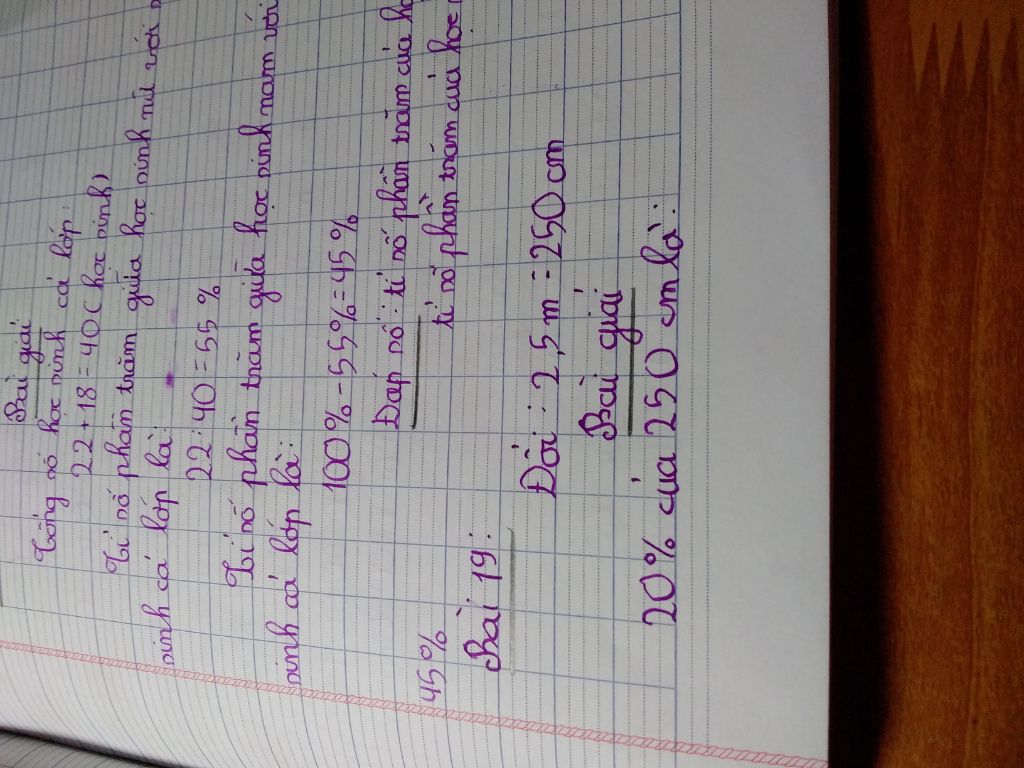 Bài giải
Tổng số học sinh cả lớp:
22 + 18 = 40 ( học sinh )
Tỉ số phần trăm giữa học sinh nữ với
sinh cả lớp là:
22 : 40 = 55 %
Tỉ số phần trăm giữa học sinh nam với
sinh cả lớp là:
100% - 55% = 45 %
Đáp số : tỉ số phần trăm của
tỉ số phần trăm của học
45 %
Bài 19 :
Đổi : 2,5 m = 250 cm
Bài giải
20 % của 250 cm là :